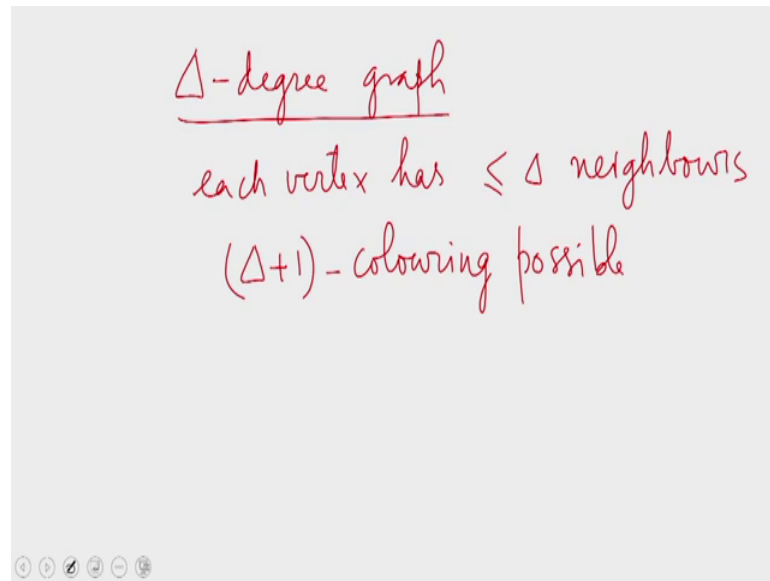 Δ-degree graph
each vertex has ≤ Δ neighbours
(Δ+1)-colouring possible